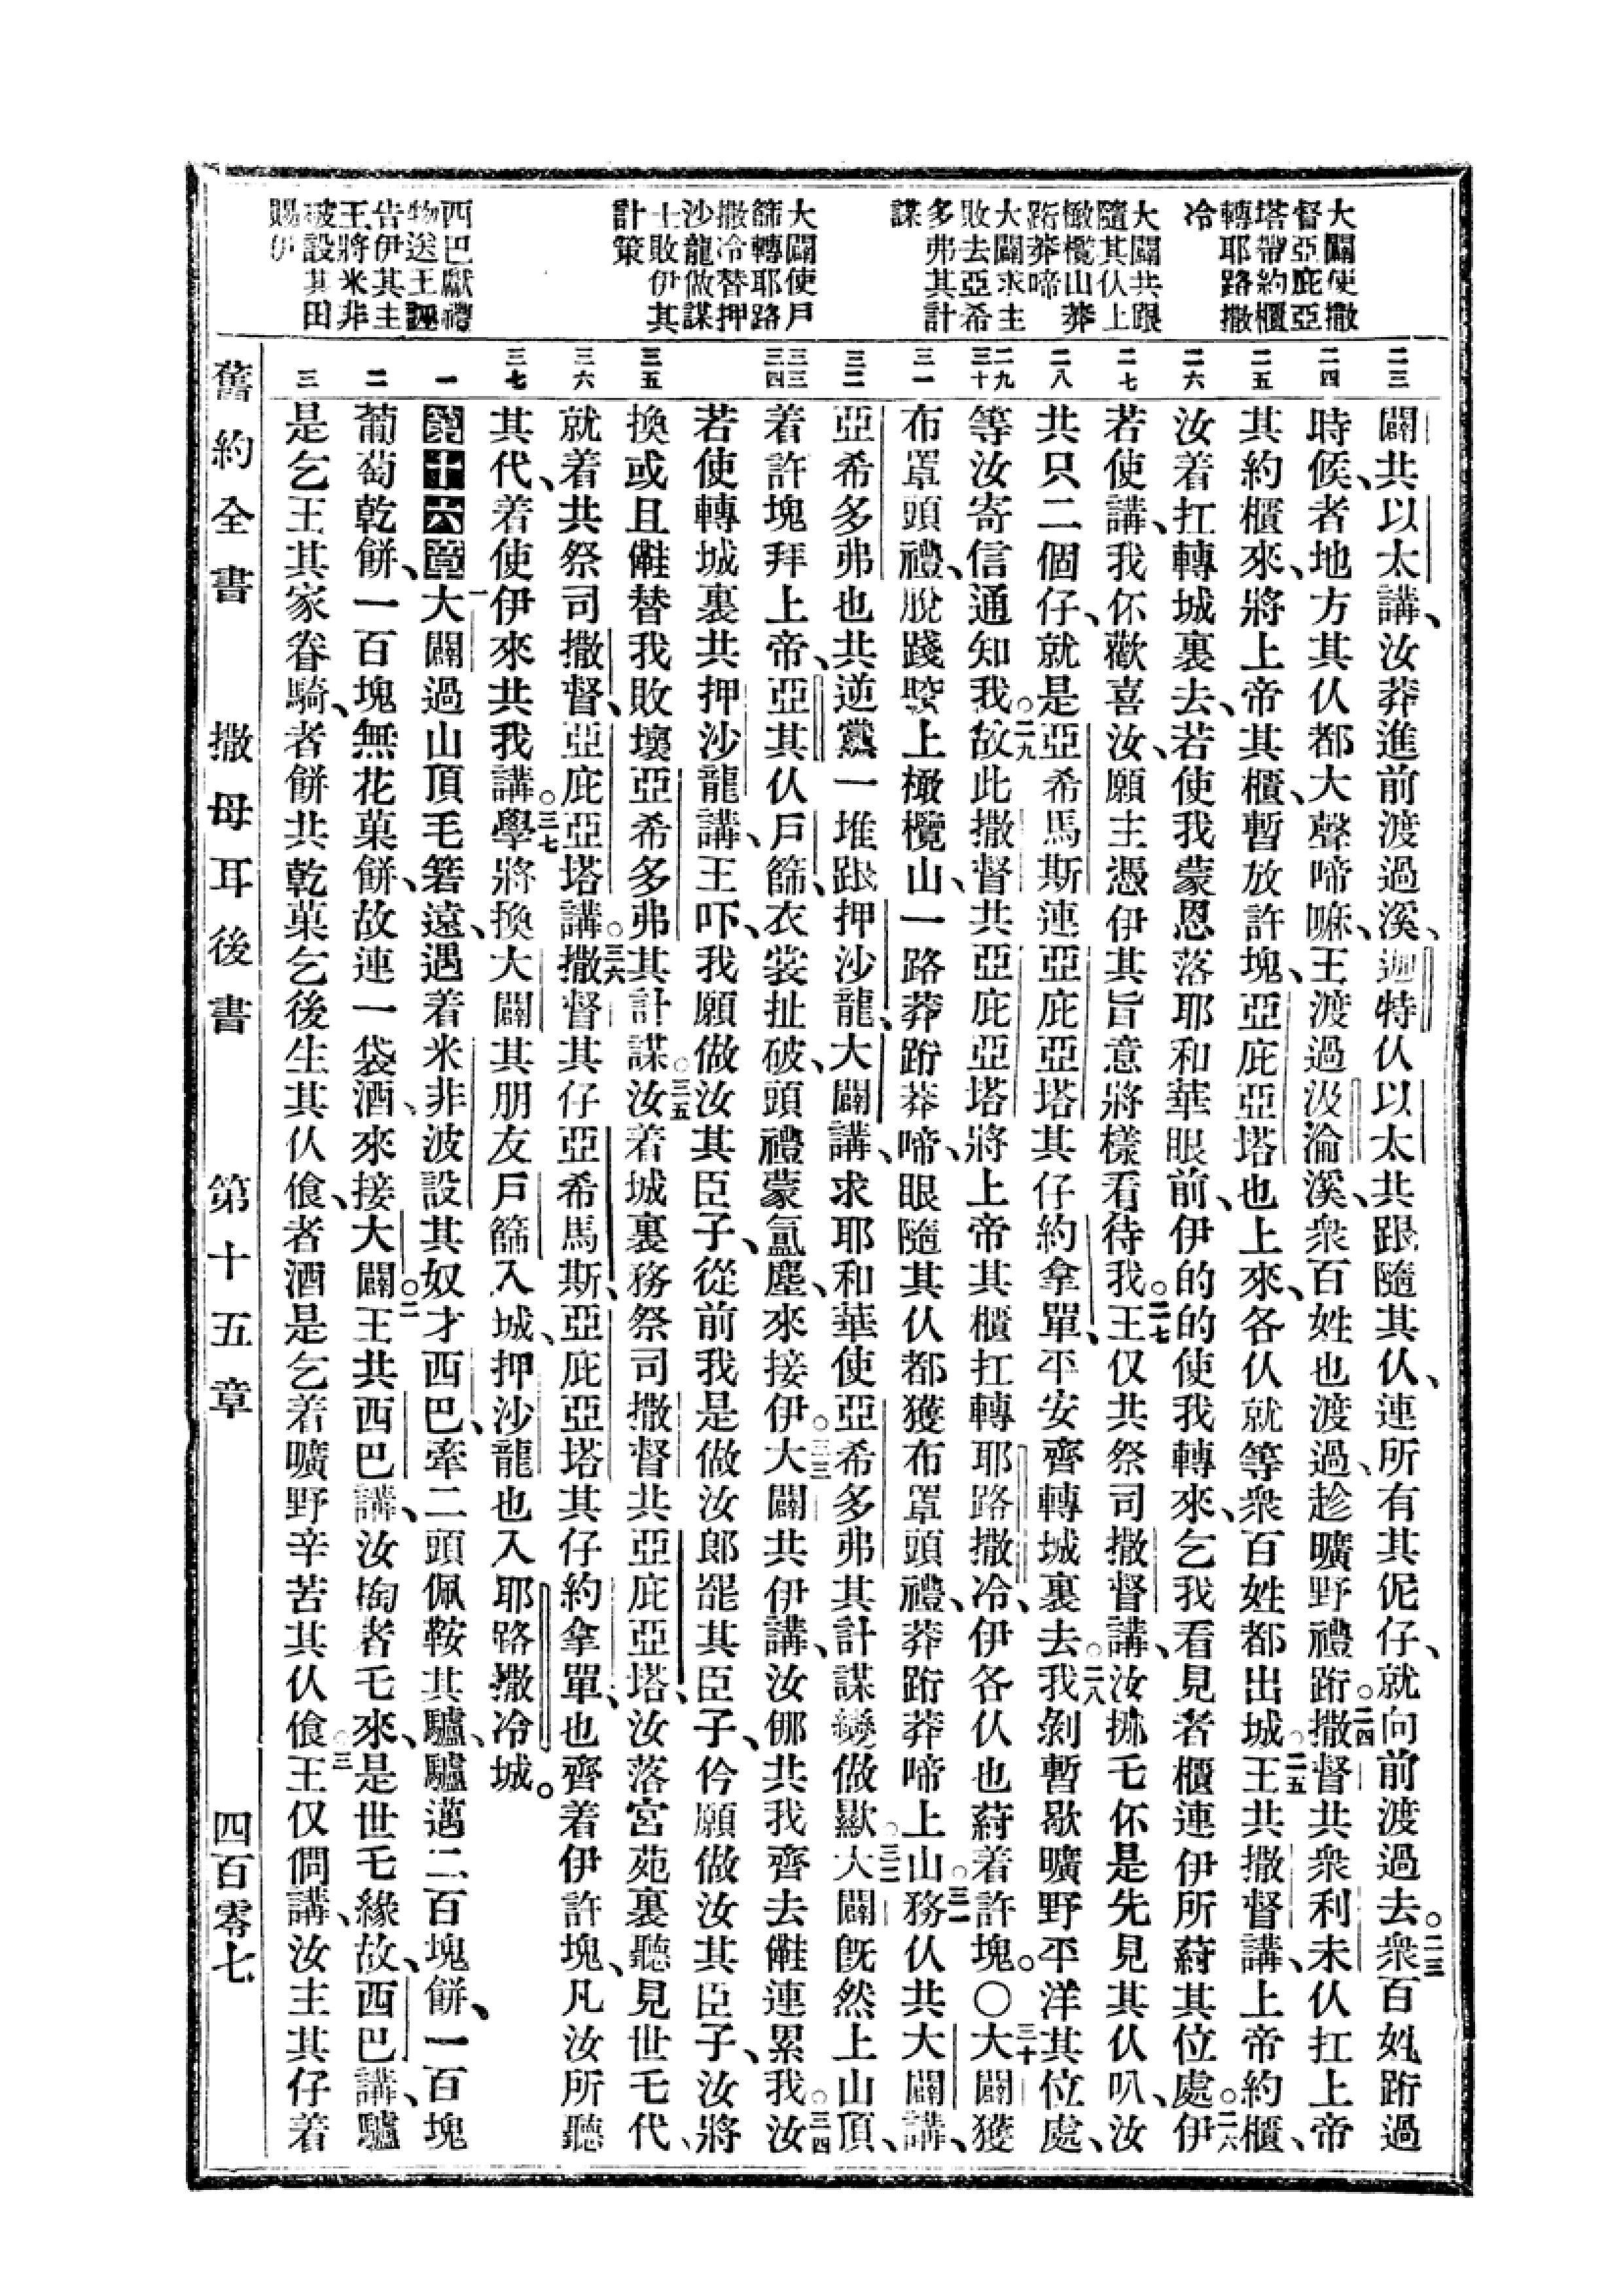 大闢使撒
督亞庇亞
塔帶約櫃
轉耶路撒
冷
大闢共跟
隨其仈上
橄欖山莽
跡莽啼
大闢求主
敗去亞希
多弗其計
謀
大闢使戶
篩轉耶路
撒冷替押
沙龍做謀
士敗伊其
計策
西巴獻禮
物送王誣
告伊其主
王將米非
波設其田
賜伊
二三
二四
二五
二六
二七
二八
二九
三十
三一
三二
三三
三四
三五
三六
三七
一
二
三
闢共以太講、汝莽進前渡過溪、迦特仈以太共跟隨其仈、連所有其伲仔、就向前渡過去。二三衆百姓跡過
時候、者地方其仈都大聲啼嘛、王渡過汲淪溪、衆百姓也渡過、趁曠野禮跡。二四撒督共衆利未仈扛上帝
其約櫃來、將上帝其櫃、暫放許塊、亞庇亞塔也上來、各仈就等衆百姓都出城。二五王共撒督講、上帝約櫃、
汝着扛轉城裏去、若使我蒙恩落耶和華眼前、伊的的使我轉來、乞我看見者櫃連伊所蔚其位處。二六伊
若使講、我伓歡喜汝、願主憑伊其旨意將樣看待我。二七王仅共祭司撒督講、汝挪乇伓是先見其仈叭、汝
共只二個仔、就是亞希馬斯連亞庇亞塔其仔約拿單、平安齊轉城裏去。二八我剝暫歇曠野平洋其位處、
等汝寄信通知我。二九故此撒督共亞庇亞塔、將上帝其櫃扛轉耶路撒冷、伊各仈也蔚着許塊。〇三十大闢獲
布罩頭禮、脫踐骹上橄欖山、一路莽跡莽啼、眼隨其仈都獲布罩頭禮、莽跡莽啼上山。三一務仈共大闢講、
亞希多弗也共逆黨一堆跟押沙龍、大闢講、求耶和華使亞希多弗其計謀變做歞。三二大闢旣然上山頂、
着許塊拜上帝、亞其仈戶篩、衣裳扯破、頭禮蒙氳塵、來接伊。三三大闢共伊講、汝挪共我齊去、㒕連累我。三四汝
若使轉城裏共押沙龍講、王吓、我願做汝其臣子、從前我是做汝郎罷其臣子、仱願做汝其臣子、汝將
換或且㒕替我敗壞亞希多弗其計謀。三五汝着城裏務祭司撒督共亞庇亞塔、汝落宮苑裏聽見世乇代、
就着共祭司撒督、亞庇亞塔講。三六撒督其仔亞希馬斯、亞庇亞塔其仔約拿單、也齊着伊許塊、凡汝所聽
其代、着使伊來共我講。三七學將換大闢其朋友戶篩入城、押沙龍也入耶路撒冷城。
第十六章 一大闢過山頂毛箬遠、遇着米非波設其奴才西巴、牽二頭佩鞍其驢、驢邁二百塊餅、一百塊
葡萄乾餅、一百塊無花菓餅、故連一袋酒、來接大闢。二王共西巴講、汝掏者乇來、是世乇緣故、西巴講、驢
是乞王其家眷騎、者餅共乾菓乞後生其仈飡、者酒是乞着曠野辛苦其仈飡。三王仅問講、汝主其仔着
舊約全書 撒母耳後書 第十五章 四百零七